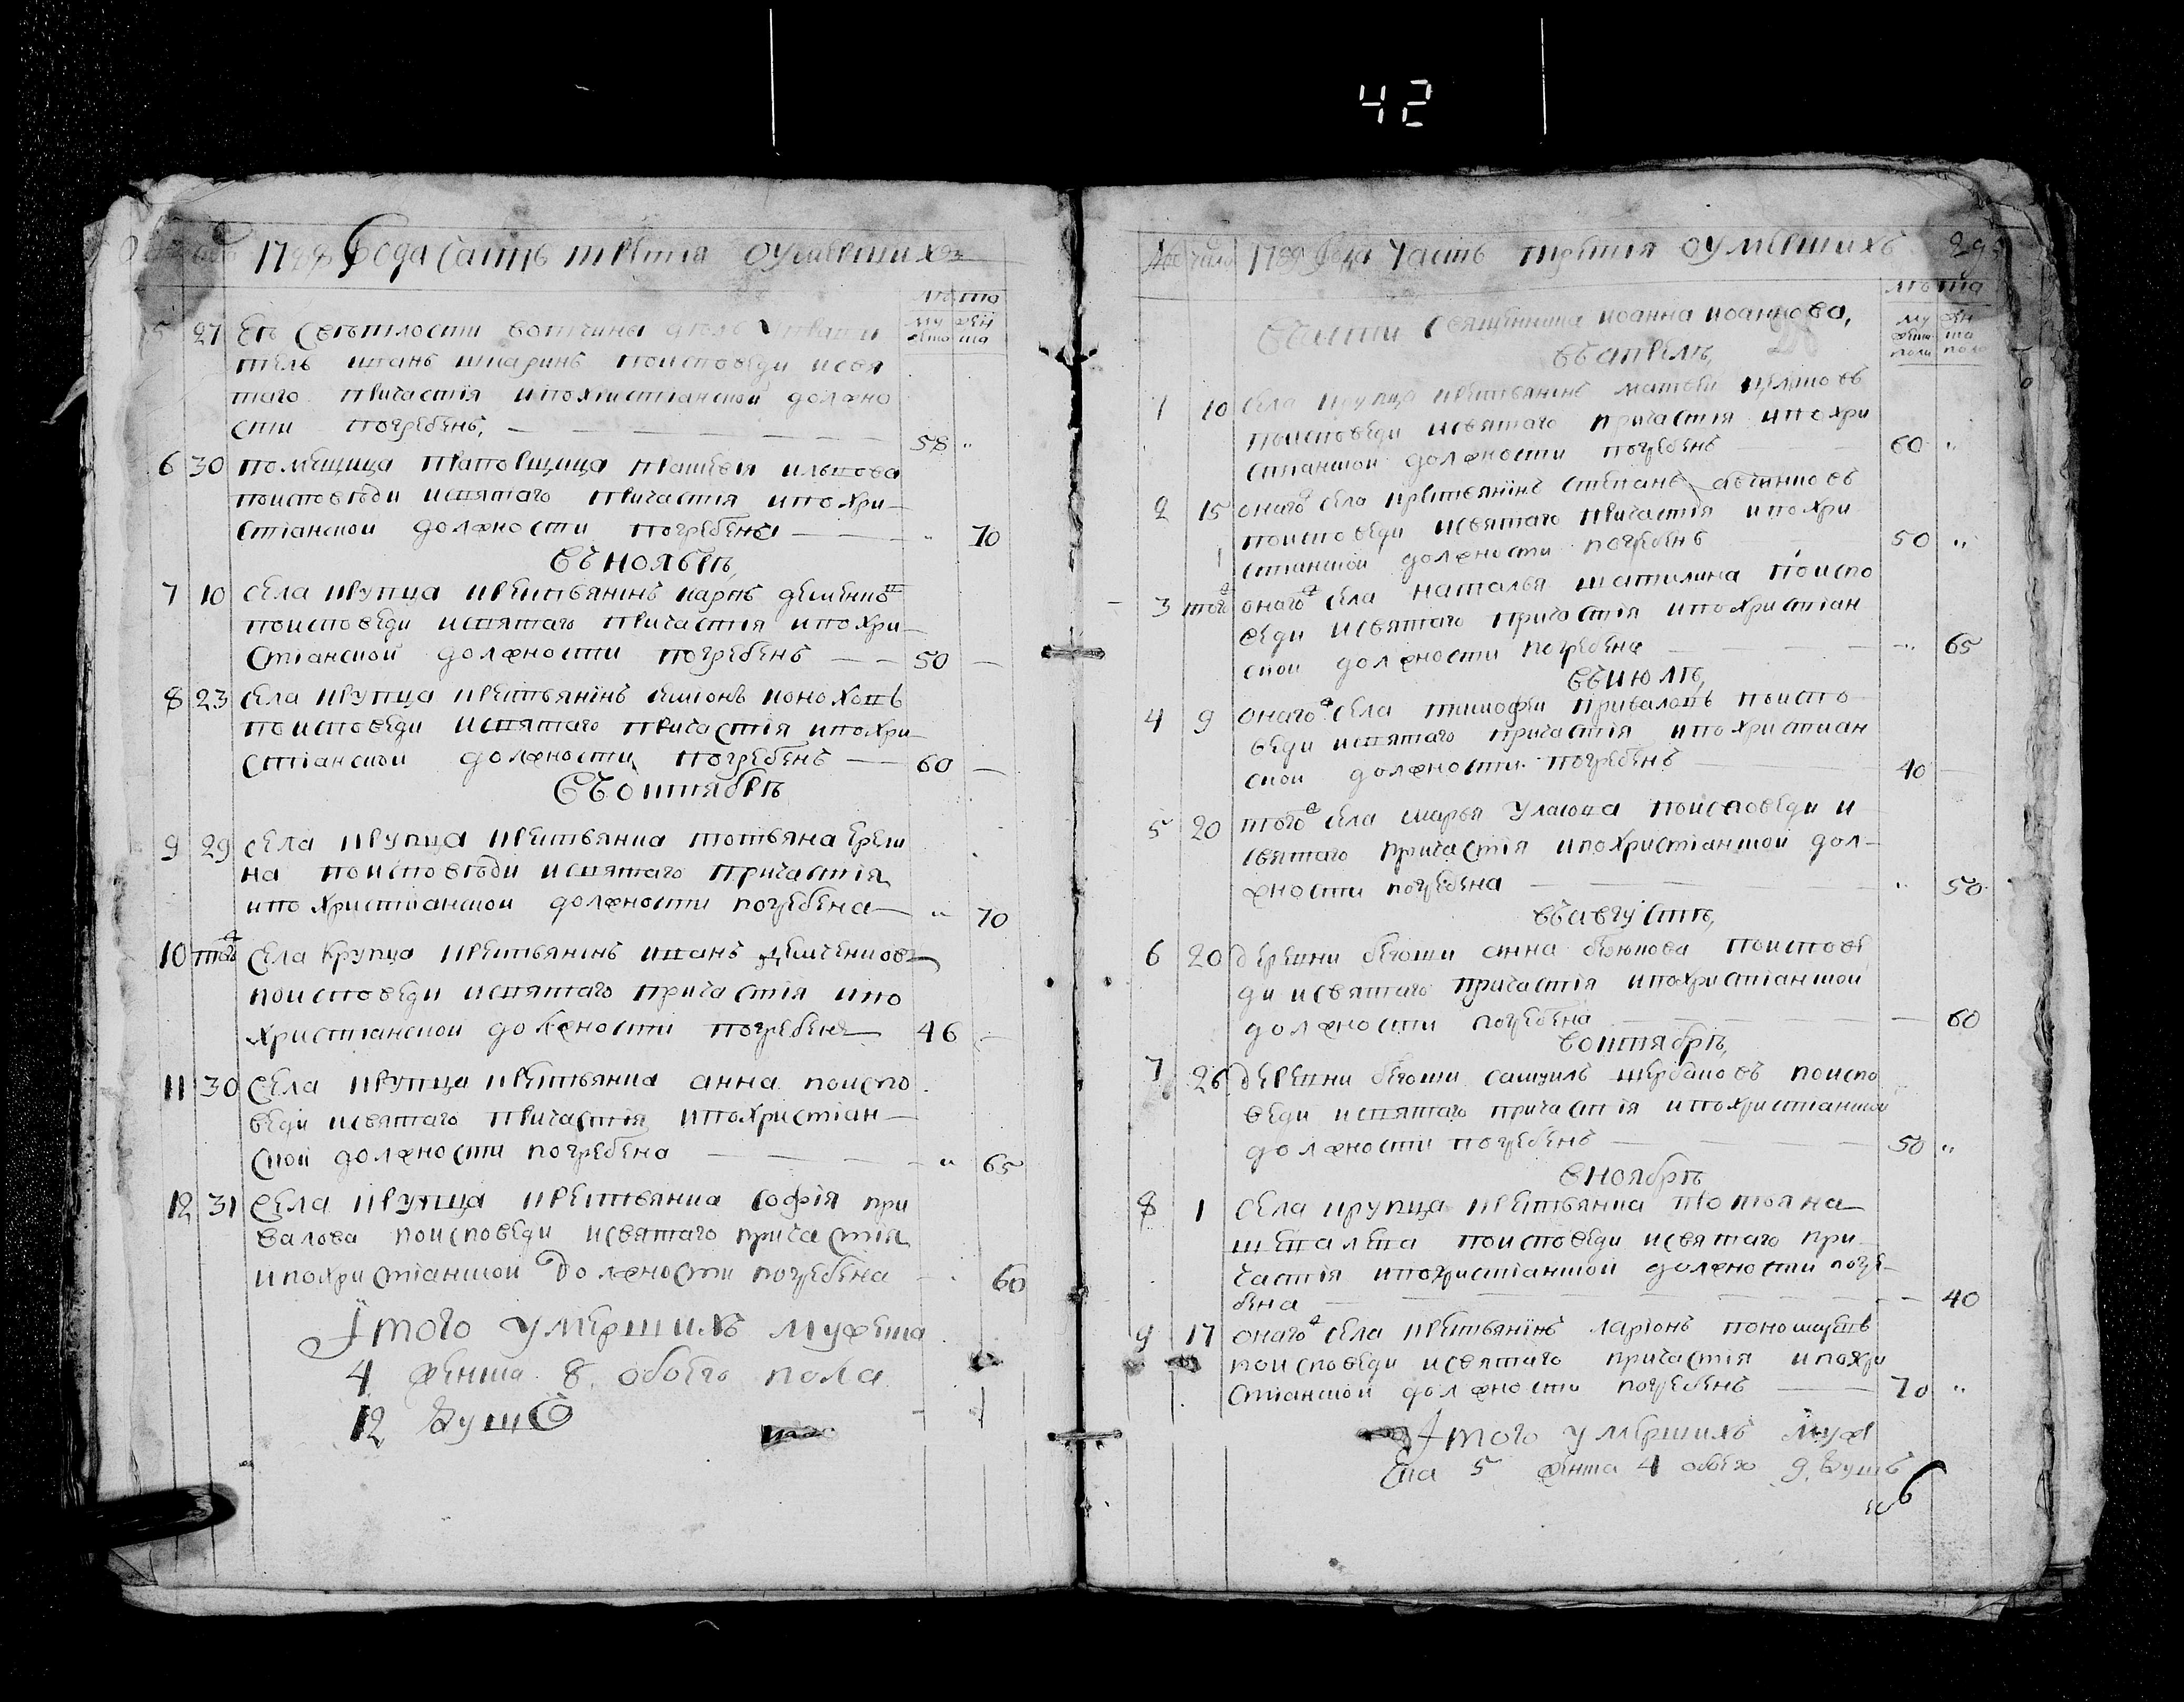 42
1789 Года Часть третия оумерших
лета
му жен
жска ска
5 27 Ея светлости вотчины
тель иванъ шкаринъ поисповеди исвя
таго причастия ипохристианской должно
сти погребенъ, 58 "
6 30 помещица евстовея ильинова
поисповѣди исвятаго причастия ипохри
стианской должности погребена " 70
въ ноябрѣ,
7 10 села крупца крестьянинъ карпъ деменков
поисповеди исвятаго причастия ипохри
стианской должности погребенъ 50
8 23 села крупца крестьянинъ симонъ конохов
поисповеди исвятаго причастія ипохри
стіанской должности погребенъ 60
въ октябрѣ
9 29 села крупца крестьянка тотьяна ереми
на поисповѣди исвятаго причастія
ипо христианской должности погребена " 70
10 того села крупца крестьянинъ иванъ демченковъ
поисповеди исвятаго причастія ипо
христианской должности погребенъ 46
11 30 села крупца крестьянка анна поиспо
веди исвятаго причастія ипохристіан
ской должности погребена " 65
12 31 села крупца крестьянка софія при
валова поисповеди исвятаго причастія
ипохристіанской должности погребена 60
Итого умершихъ мужеска
4 женска 8 обоего пола
12 душъ
чило 1789 года Часть третія оумершихъ 29
лѣта
му жен
жска ска
пола пола
Части священника иоанна иоаннова,
въ апрелѣ,
1 10 села крупца крестьянинъ матвей целиковъ
поисповеди исвятаго причастія ипохри
стианской должности погребенъ 60 "
2 15 онаго села крестьянинъ степанъ
поисповеди исвятаго причастія ипохри
стианской должности погребенъ 50 "
3 того онаго села наталья шатилина поиспо
веди исвятаго причастія ипохристіан
ской должности погребена " 65
въ июлѣ,
4 9 онаго села тимофей приваловъ поиспо
веди исвятаго причастія ипохристиан
ской должности погребенъ 40
5 20 того села марья улакова поисповеди и
святаго причастія ипохристіанской дол
жности погребена " 50
въ августѣ,
6 20 деревни бегоши анна бирюкова поиспове
ди исвятаго причастія ипохристіанской
должности погребена 60
въ октябрѣ,
7 26 деревни бегоши самуилъ щербаковъ поиспо
веди исвятаго причастія ипохристіанской
должности погребенъ 50 "
в ноябрѣ
8 1 села крупца крестьянка тотояна
шевалева поисповеди исвятаго при
частія ипохристіанской должности погре
бена 40
9 17 онаго села крестьянинъ ларіонъ
поисповеди исвятаго причастія ипохри
стіанской должности погребенъ 70 "
Итого умершихъ муже
ска 5 женска 4 обоего 9 душъ